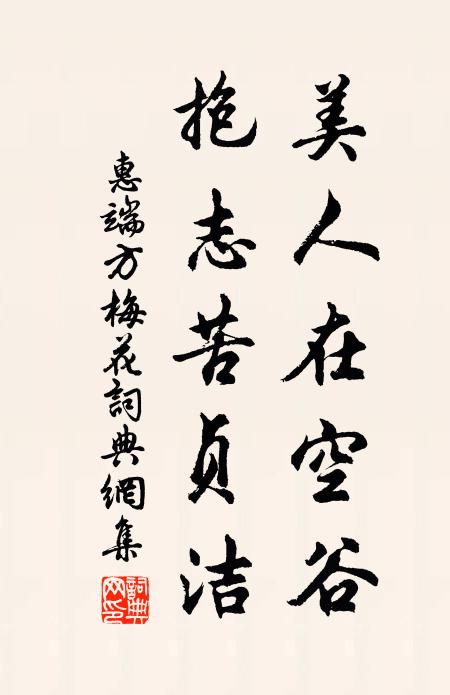 美人在空谷
抱志苦贞洁
惠端方梅花詞典網集
詞典网印